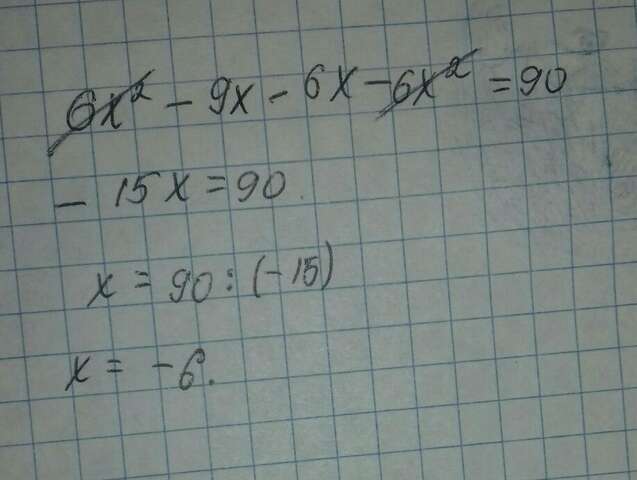 6x² - 9x - 6x - 6x² = 90
- 15x = 90
x = 90 : (-15)
x = -6.